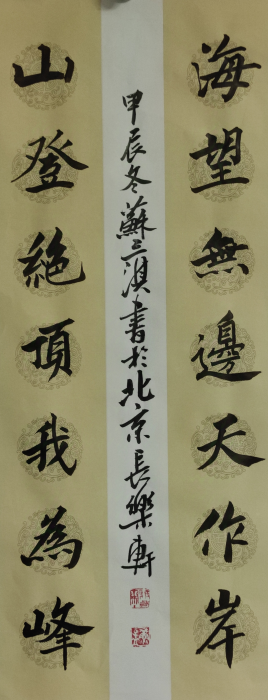 海望無邊天作岸
山登絶頂我為峰
甲辰冬蘇三演書於北京長樂軒